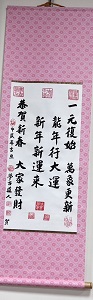 一元復始 萬象更新
龍年行大運
新年新運來
恭賀新春 大家發財